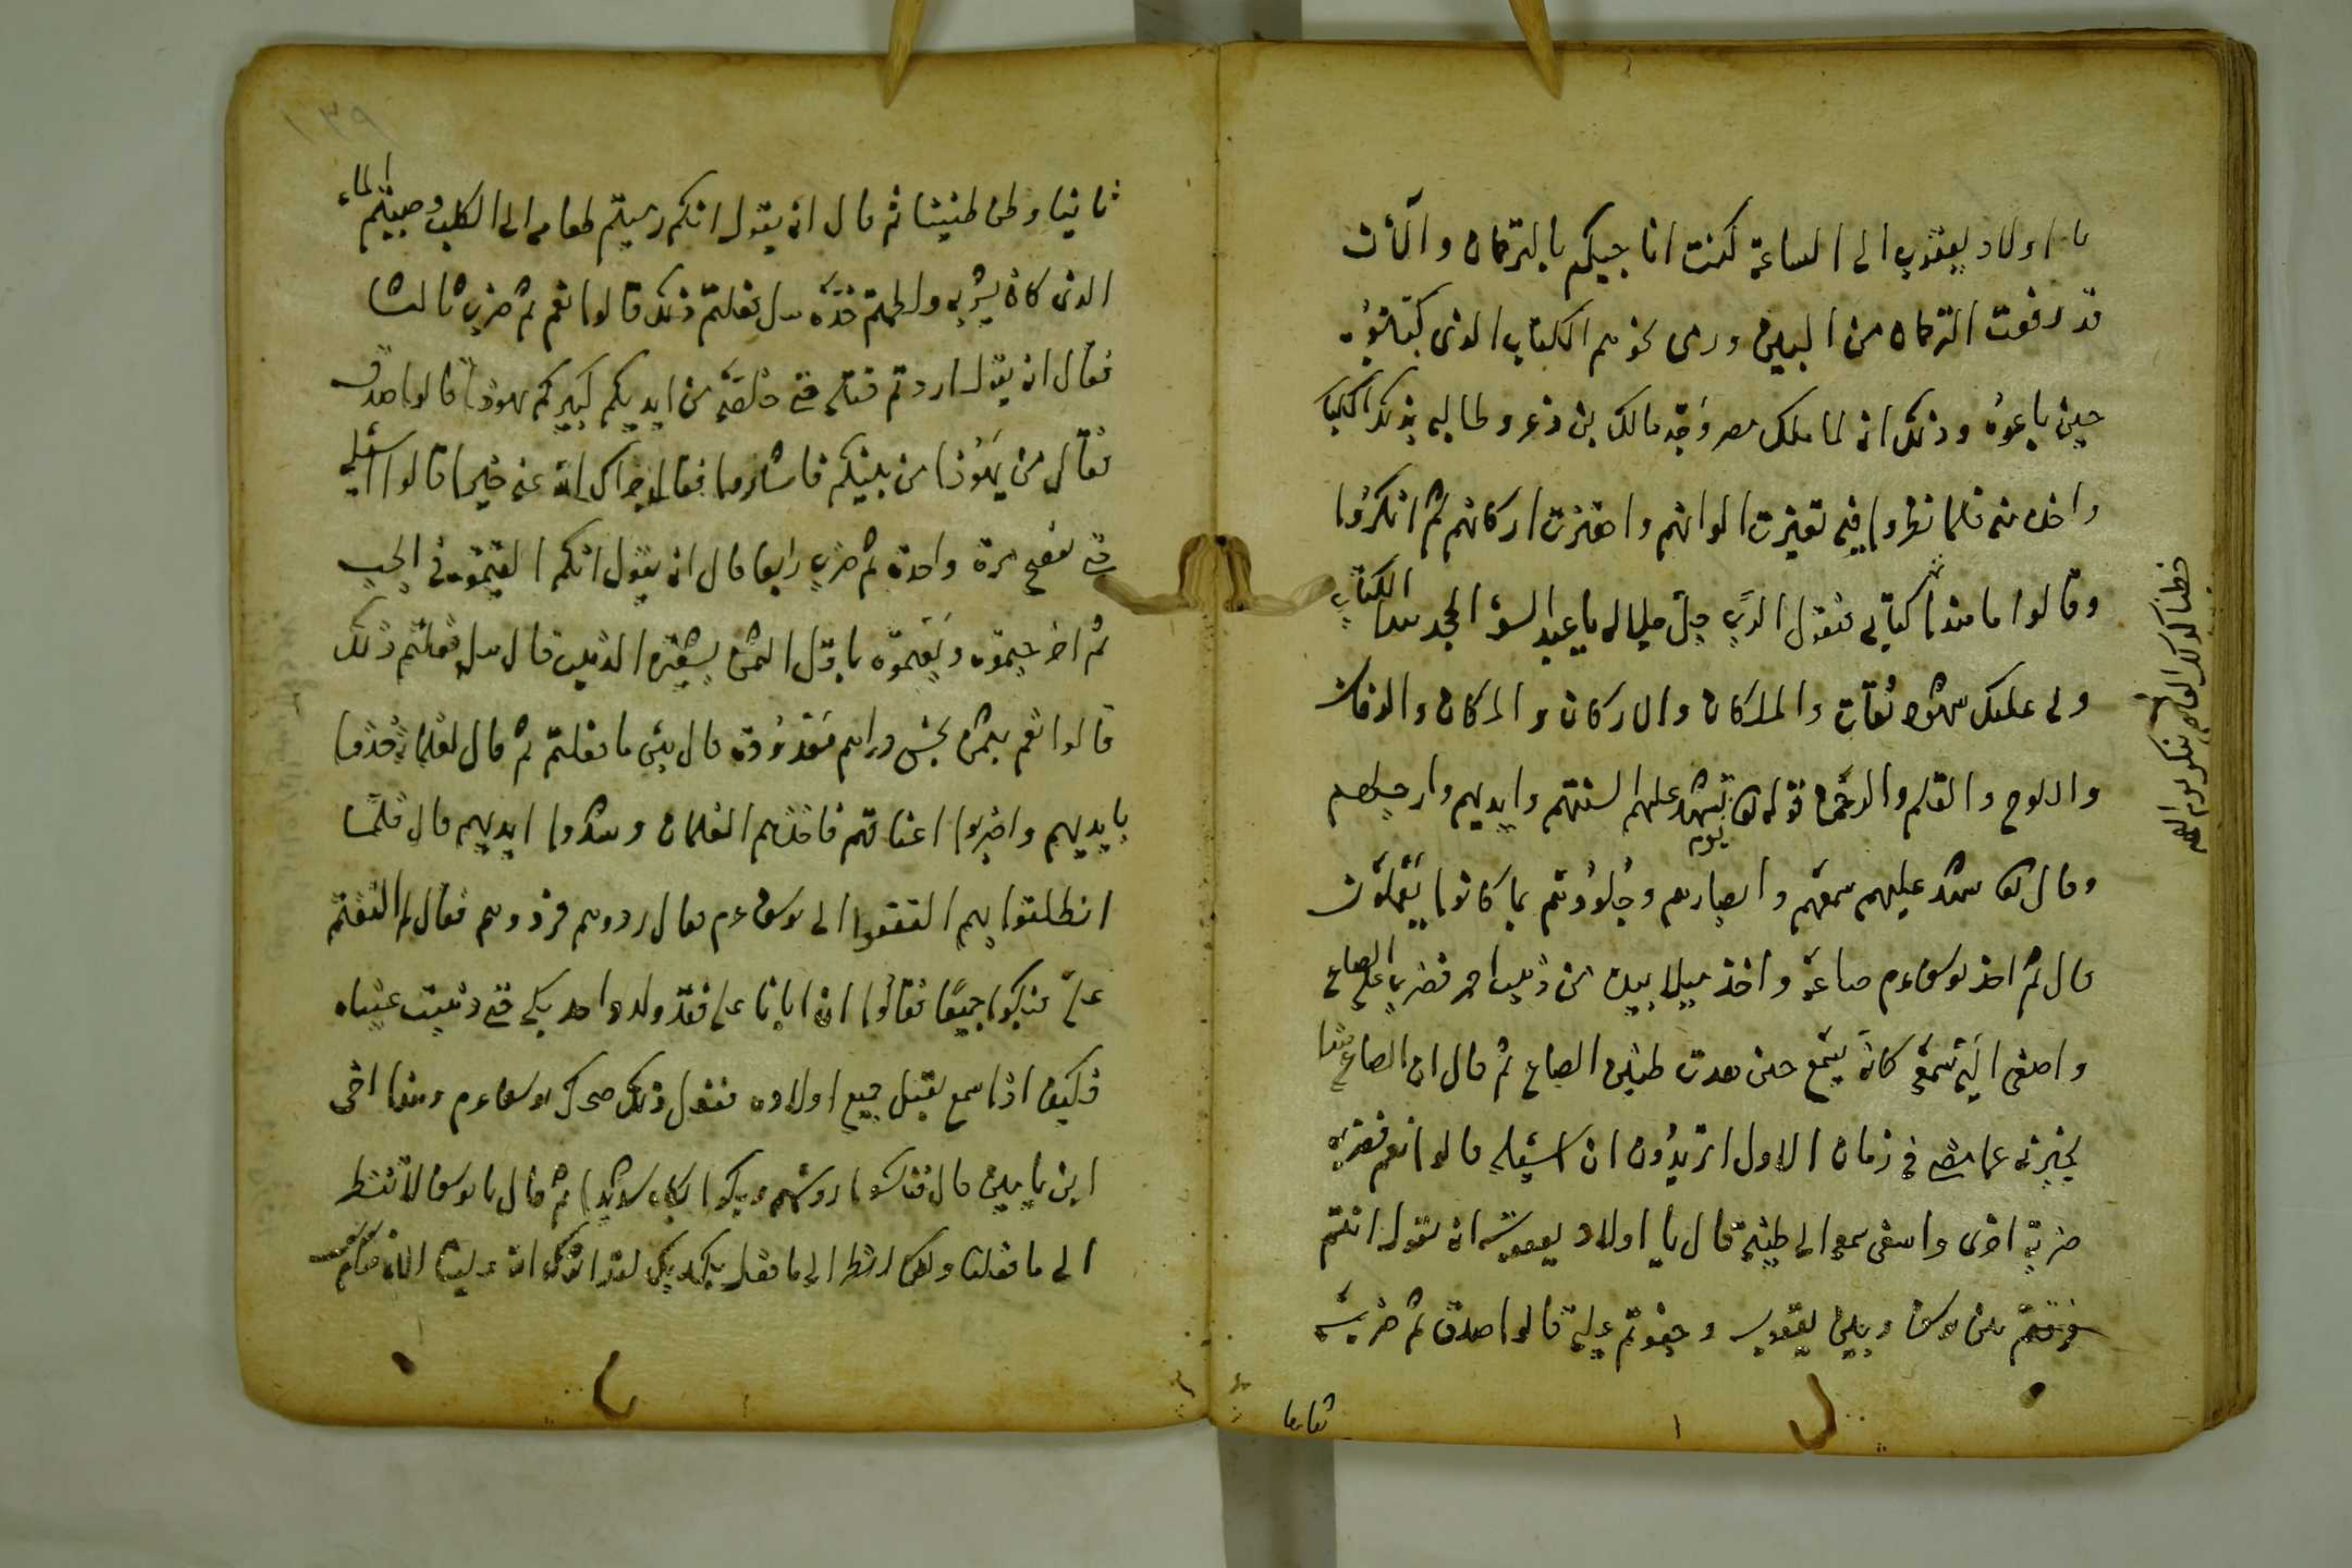 يا اولاد يعقوب الى الساعة كنت اناجيكم بالترجمان والآن
قد رفعت الترجمان من البين ورمى نحوهم الكتاب الذى كتبوه
حين باعوه وذلك انه لما ملك مصر وجد مالك بن ذعر وطالبه بذلك الكتاب
واخذه منه فلما نظروا فيه تغيرت الوانهم واهتزت اركانهم ثم انكروا
وقالوا ما هذا كتابى فيقول الرب جل جلاله يا عبد السوء اتجحد هذا الكتاب
ولى عليك شهود ثقات والملكان والاركان والمكان والزمان
واللوح والقلم والرحمن قوله تعا يوم تشهد عليهم السنتهم وايديهم وارجلهم
وقال تعا شهد عليهم سمعهم وابصارهم وجلودهم بما كانوا يعملون
قال ثم اخذ يوسف عم صاعه واخذ ميلا بيده من ذهب احمر فضرب على الصاع
واصغى اليه سمعه كانه يسمع حتى هدت طنين الصاع ثم قال ان الصاع هذا
يخبرنى عما مضى فى زمان الاول اتريدون ان اسئله قالوا نعم فضربه
ضربة اخرى واصغى سمعه الى طنينه قال يا اولاد يعقوب انه يقول انتم
فرقتم بين يوسف وبين يعقوب وجفوتم عليه قالوا صدق ثم ضربه
ثانيا
ثانيا وطن طنينا ثم قال انه يقول انكم رميتم طعامه الى الكلب وصببتم الماء
الذى كان يشربه ولطمتم خده هل فعلتم ذلك قالوا نعم ثم ضرب ثالثا
فقال انه يقول اردتم قتله حتى خلصه من ايديكم كبيركم يهوذا قالوا صدق
فقال من يهوذا من بينكم فاشاروا فقال جزاك الله عنه خيرا قالوا اسئله
حتى نفضح مرة واحدة ثم ضرب رابعا قال انه يقول انكم القيتموه فى الجب
ثم اخرجتموه وبعتموه باقل الثمن بسبعة الذين قال هل فعلتم ذلك
قالوا نعم بثمن بخس دراهم معدودة قال بئس ما فعلتم ثم قال لغلمانه خذوا
بايديهم واضربوا اعناقهم فاخذهم الغلمان وشدوا ايديهم قال فلما
انطلقوا بهم التفتوا الى يوسف عم فقال ردوهم فردوهم فقال لم التفتم
علىّ فبكوا جميعا فقالوا ان ابانا على فقد ولد واحد بكى حتى ذهبت عيناه
فكيف اذا سمع بقتل جميع اولاده فعند ذلك ضحك يوسف عم وهذا اخى
ابن يامين قال فنكسوا رؤسهم وبكوا بكاء شديدا ثم قال يا يوسف لا تنظر
الى ما فعلنا ولكن انظر الى ما فعل بك ربك لقد آثرك الله علينا